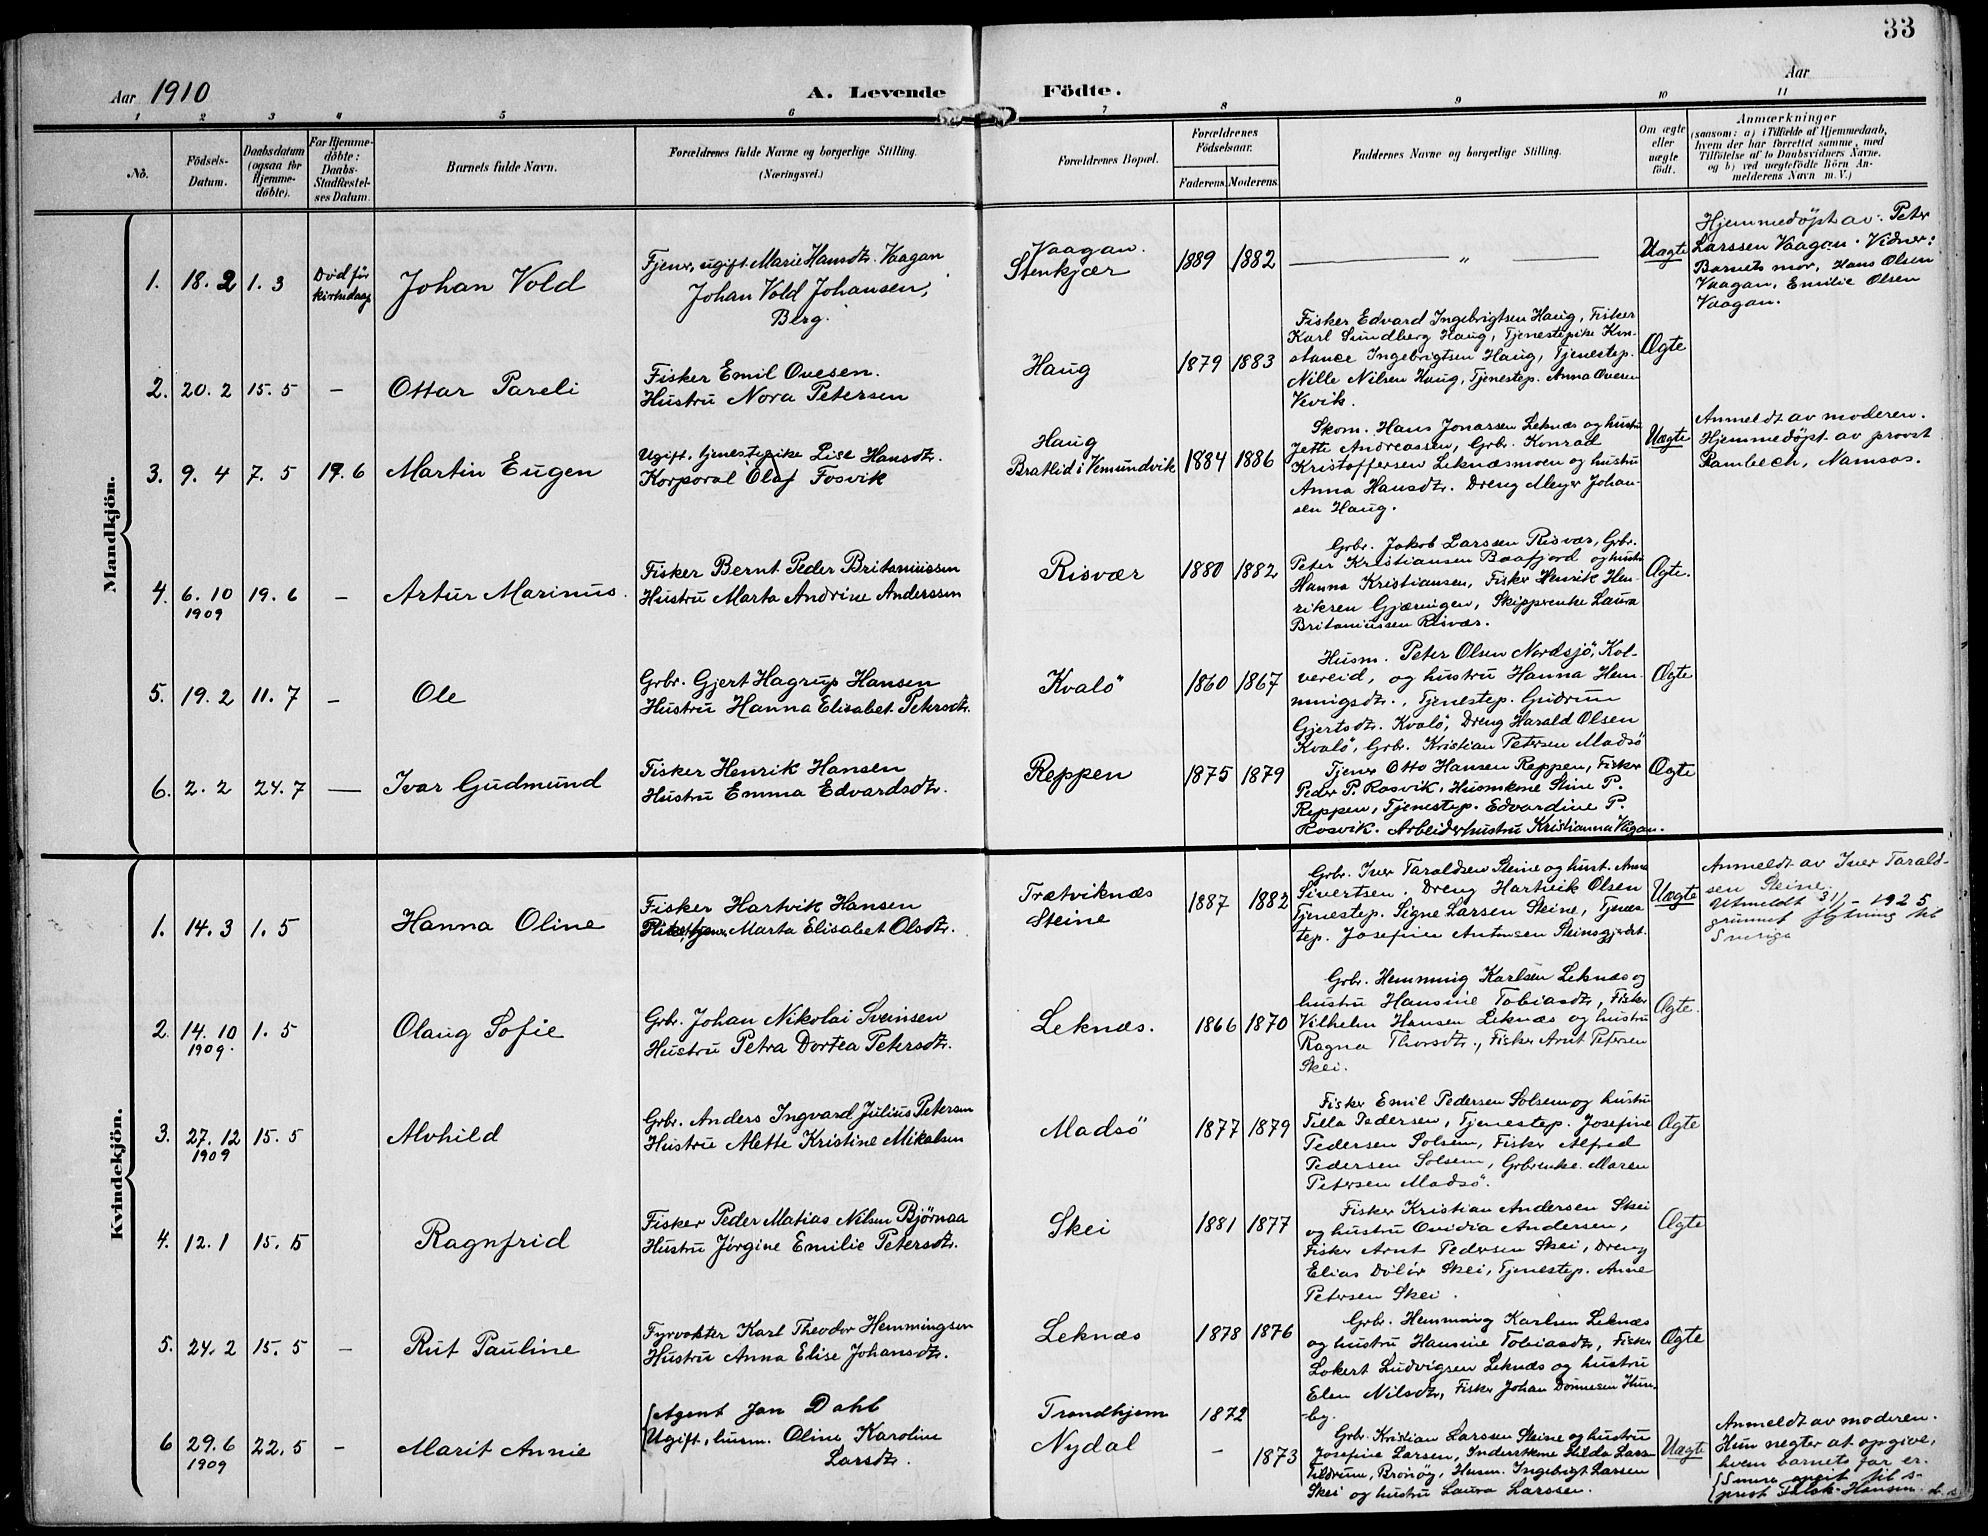 33
Aar 1910
A. Levende
Födte.
Aar
1 2 3 4 5 6 7 8 9 10 11
No.
Födsels-
Datum.
Daabsdatum
(ogsaa for
Hjemme-
döbte).
For Hjemme-
döbte:
Daabs-
Stadfæstel-
ses Datum.
Barnets fulde Navn.
Forældrenes fulde Navne og borgerlige Stilling.
(Næringsvei.)
Forældrenes Bopæl.
Forældrenes
Födselsaar.
Faderens. Moderens.
Faddernes Navne og borgerlige Stilling.
Om ægte
eller
uægte
födt.
Anmærkninger
(saasom: a) i Tilfælde af Hjemmedaab,
hvem der har forrettet samme, med
Tilföielse af to Daabsvidners Navne.
og b) ved uægtefödte Börn An-
melderens Navn m. V.)
Mandkjön.
1. 18. 2 1. 3
Död før
kirkedaap
Johan Vold
Tjener, ugift Marie Hansdtr. Vaagan
Johan Vold Johansen,
Berg.
Vaagan.
Stenkjær
1889 1882
— " —
Uægte
Hjemmedøpt av: Peter
Larssen Vaagan. Vidner:
Barnets mor, Hans Olsen
Vaagan, Emilie Olsen
Vaagan.
2. 20. 2 15. 5 –
Ottar Pareli
Fisker Emil Ovesen.
Hustru Nora Petersen
Haug
1879 1883
Fisker Edvard Ingebrigtsen Haug, Fisker
Karl Sundberg Haug, Tjenestepike Kon-
stance Ingebrigtsen Haug, Tjenestep.
Nille Nilsen Haug, Tjenestep. Anna Ovesen
Vevik.
Ægte
3. 9. 4 7. 5 19. 6
Martin Eugen
Ugift, tjenestepike Lise Hansdtr.
Korporal Olaf Fosvik
Haug
Bratlid i Vemundvik
1884 1886
Skom. Hans Jonassen Leknæs og hustru
Jette Andreassen, Grbr. Konrad
Kristoffersen Leknæsmoen og hustru
Anna Hansdtr. Dreng Meyer Johan-
sen Haug.
Uægte
Anmeldt av moderen.
Hjemmedøpt av provst
Rambech, Namsos.
4. 6. 10 19. 6 –
1909
Artur Marinus.
Fisker Bernt Peder Britaniussen
Hustru Marta Andrine Anderssen
Risvær
1880 1882
Grbr. Jakob Larssen Risvær, Grbr.
Peter Kristiansen Baafjord og hustru
Hanna Kristiansen, Fisker Henrik Hen-
riksen Gjæringen, Skipperenke Laura
Britaniussen Risvær.
Ægte.
5. 19. 2 11. 7 –
Ole
Grbr. Gjert Hagrup Hansen
Hustru Hanna Elisabet Petersdtr.
Kvalö
1860 1867
Husm. Peter Olsen Nordsjö, Kol-
vereid, og hustru Hanna Hem-
mingsdtr., Tjenestep. Gudrun
Gjertsdtr. Kvalö, Dreng Harald Olsen
Kvalö, Grbr. Kristian Petersen Madsö
Ægte
6. 2. 2 24. 7 —
Ivar Gudmund
Fisker Henrik Hansen
Hustru Emma Edvardsdtr.
Reppen
1875 1879
Tjener Otto Hansen Reppen, Fisker
Peder P. Rosvik, Husmkone Stine P.
Reppen, Tjenestep. Edvardine P.
Rosvik. Arbeiderhustru Kristianna Vagan.
Ægte
Kvindekjön.
1. 14. 3 1. 5
Hanna Oline
Fisker Hartvik Hansen
Marta Elisabet Olsdtr.
Trætviknæs
Steine
1887 1882
Grbr. Iver Taraldsen Steine og hust. Anna
Sivertsen. Dreng Hartvik Olsen
Tjenestep. Signe Larsen Steine, Tjenes
tep. Josefine Antonsen Steinsgjerdet.
Uægte
Anmeldt av Iver Tarald-
sen Steine.
Utmeldt 31/1 - 1925
grunnet flytning til
Sverige
2. 14. 10 1. 5
1909.
Olaug Sofie
Grbr. Johan Nikolai Sveinsen
Hustru Petra Dortea Petersdtr.
Leknæs.
1866 1870
Grbr. Hemming Karlsen Leknæs og
hustru Hansine Tobiasdtr, Fisker
Vilhelm Hansen Leknæs og hustru
Ragna Thorsdtr., Fisker Arnt Petersen
Skei.
Ægte.
3. 27. 12 15. 5
1909
Alvhild
Grbr. Anders Ingvard Julius Petersen
Hustru Alette Kristine Mikalsen
Madsö
1877 1879
Fisker Emil Pedersen Solsem og hustru
Tilla Pedersen, Tjenestep. Josefine
Pedersen Solsem, Fisker Alfred
Pedersen Solsem, Grbrenke Maren
Petersen Madsö.
Ægte
4. 12. 1 15. 5
Ragnfrid
Fisker Peder Matias Nilsen Bjørnaa
Hustru Jørgine Emilie Petersdtr.
Skei
1881 1877
Fisker Kristian Andersen Skei
og hustru Ovidia Andersen,
Fisker Arnt Pedersen Skei, Dreng
Elias Skei, Tjenestep. Anne
Petersen Skei.
Ægte
5. 24. 2 15. 5 –
Rut Pauline
Fyrvokter Karl Theodor Hemmingsen
Hustru Anna Elise Johansdtr.
Leknæs
1878 1876
Grbr. Hemming Karlsen Leknæs
og hustru Hansine Tobiasdtr, Fisker
Lokert Ludvigsen Leknæs og hustru
Elen Nilsdtr, Fisker Johan Dønnesen Hun-
by.
Ægte
6 29. 6 22. 5 –
1909
Marit Annie
Agent Jan Dahl
Ugift, husm. Oline Karoline
Larsdtr.
Trondhjem
Nydal
1872
– 1873
Grbr. Kristian Larssen Steine og hustru
Josefine Larsen, Hilda Lars-
Tildrum, Brønøy, Husm. Ingebrigt Larssen
Skei og hustru Laura Larssen.
Uægte
Anmeldt av moderen.
Hun negter at opgive,
hvem barnets far er.
Senere opgit til s-
prest Falch-Hansen.